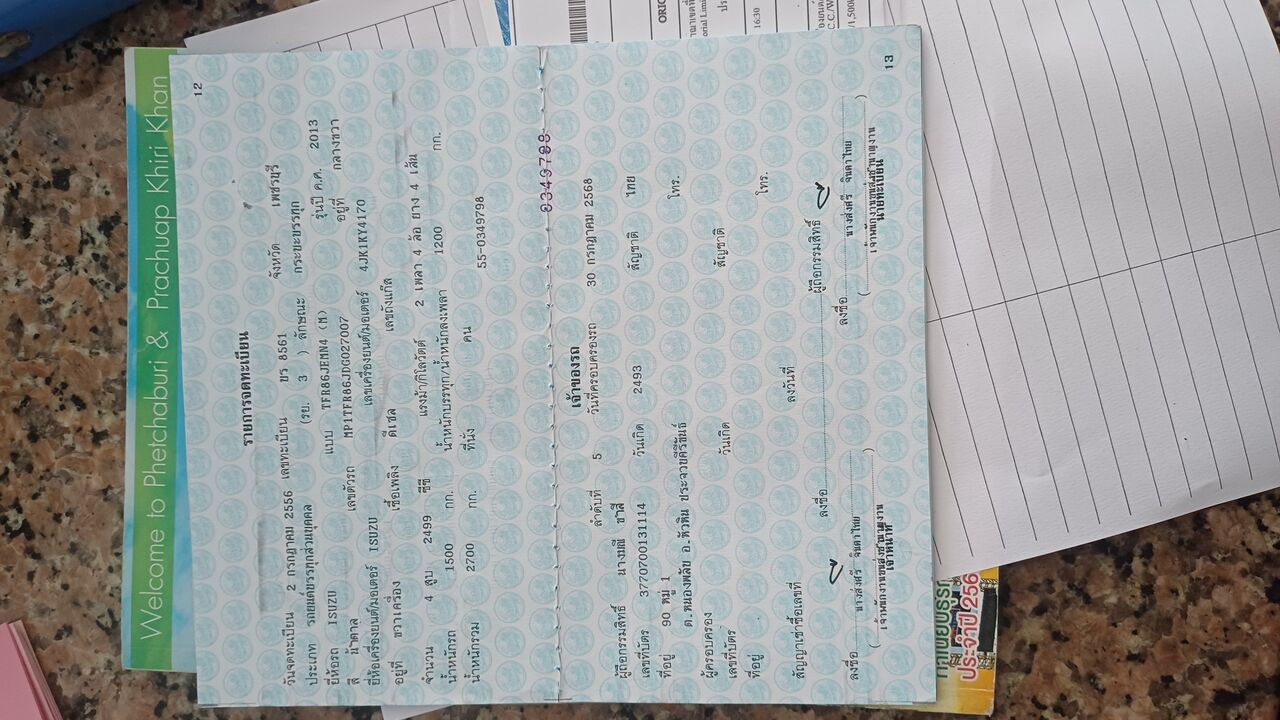 Welcome to Phetchaburi & Prachuap Khiri Khan
12
รายการจดทะเบียน
วันจดทะเบียน 2 กรกฎาคม 2556 เลขทะเบียน ขร 8561 จังหวัด เพชรบุรี
ประเภท รถยนต์บรรทุกส่วนบุคคล (รย. 3 ) ลักษณะ กระบะบรรทุก
ยี่ห้อรถ ISUZU แบบ TFR86JEMN4 (M) รุ่นปี ค.ศ. 2013
สี น้ำตาล เลขตัวรถ MP1TFR86JDG027007 อยู่ที่ กลางขวา
ยี่ห้อเครื่องยนต์/มอเตอร์ ISUZU เลขเครื่องยนต์/มอเตอร์ 4JK1KY4170
อยู่ที่ ขวาเครื่อง เชื้อเพลิง ดีเซล เลขถังแก๊ส
จำนวน 4 สูบ 2499 ซีซี แรงม้า/กิโลวัตต์ 2 เพลา 4 ล้อ ยาง 4 เส้น
น้ำหนักรถ 1500 กก. น้ำหนักบรรทุก/น้ำหนักลงเพลา 1200 กก.
น้ำหนักรวม 2700 กก. ที่นั่ง คน 55-0349798
0349798
เจ้าของรถ
ลำดับที่ 5 วันที่ครอบครองรถ 30 กรกฎาคม 2568
ผู้ถือกรรมสิทธิ์ นางมณี ชาลี
เลขที่บัตร 3770700131114 วันเกิด 2493 สัญชาติ ไทย
ที่อยู่ 90 หมู่ 1 โทร.
ต.หนองพลับ อ.หัวหิน ประจวบคีรีขันธ์
ผู้ครอบครอง
เลขที่บัตร วันเกิด สัญชาติ
ที่อยู่ โทร.
สัญญาเช่าซื้อเลขที่ ลงวันที่
ลงชื่อ ผู้ถือกรรมสิทธิ์
ลงชื่อ นางส่งศรี จินดาไทย ลงชื่อ นางส่งศรี จินดาไทย
( ) ( )
เจ้าพนักงานขนส่งชำนาญงาน เจ้าพนักงานขนส่งชำนาญงาน
เจ้าหน้าที่ นายทะเบียน
13
ประจำปี 256
16:30